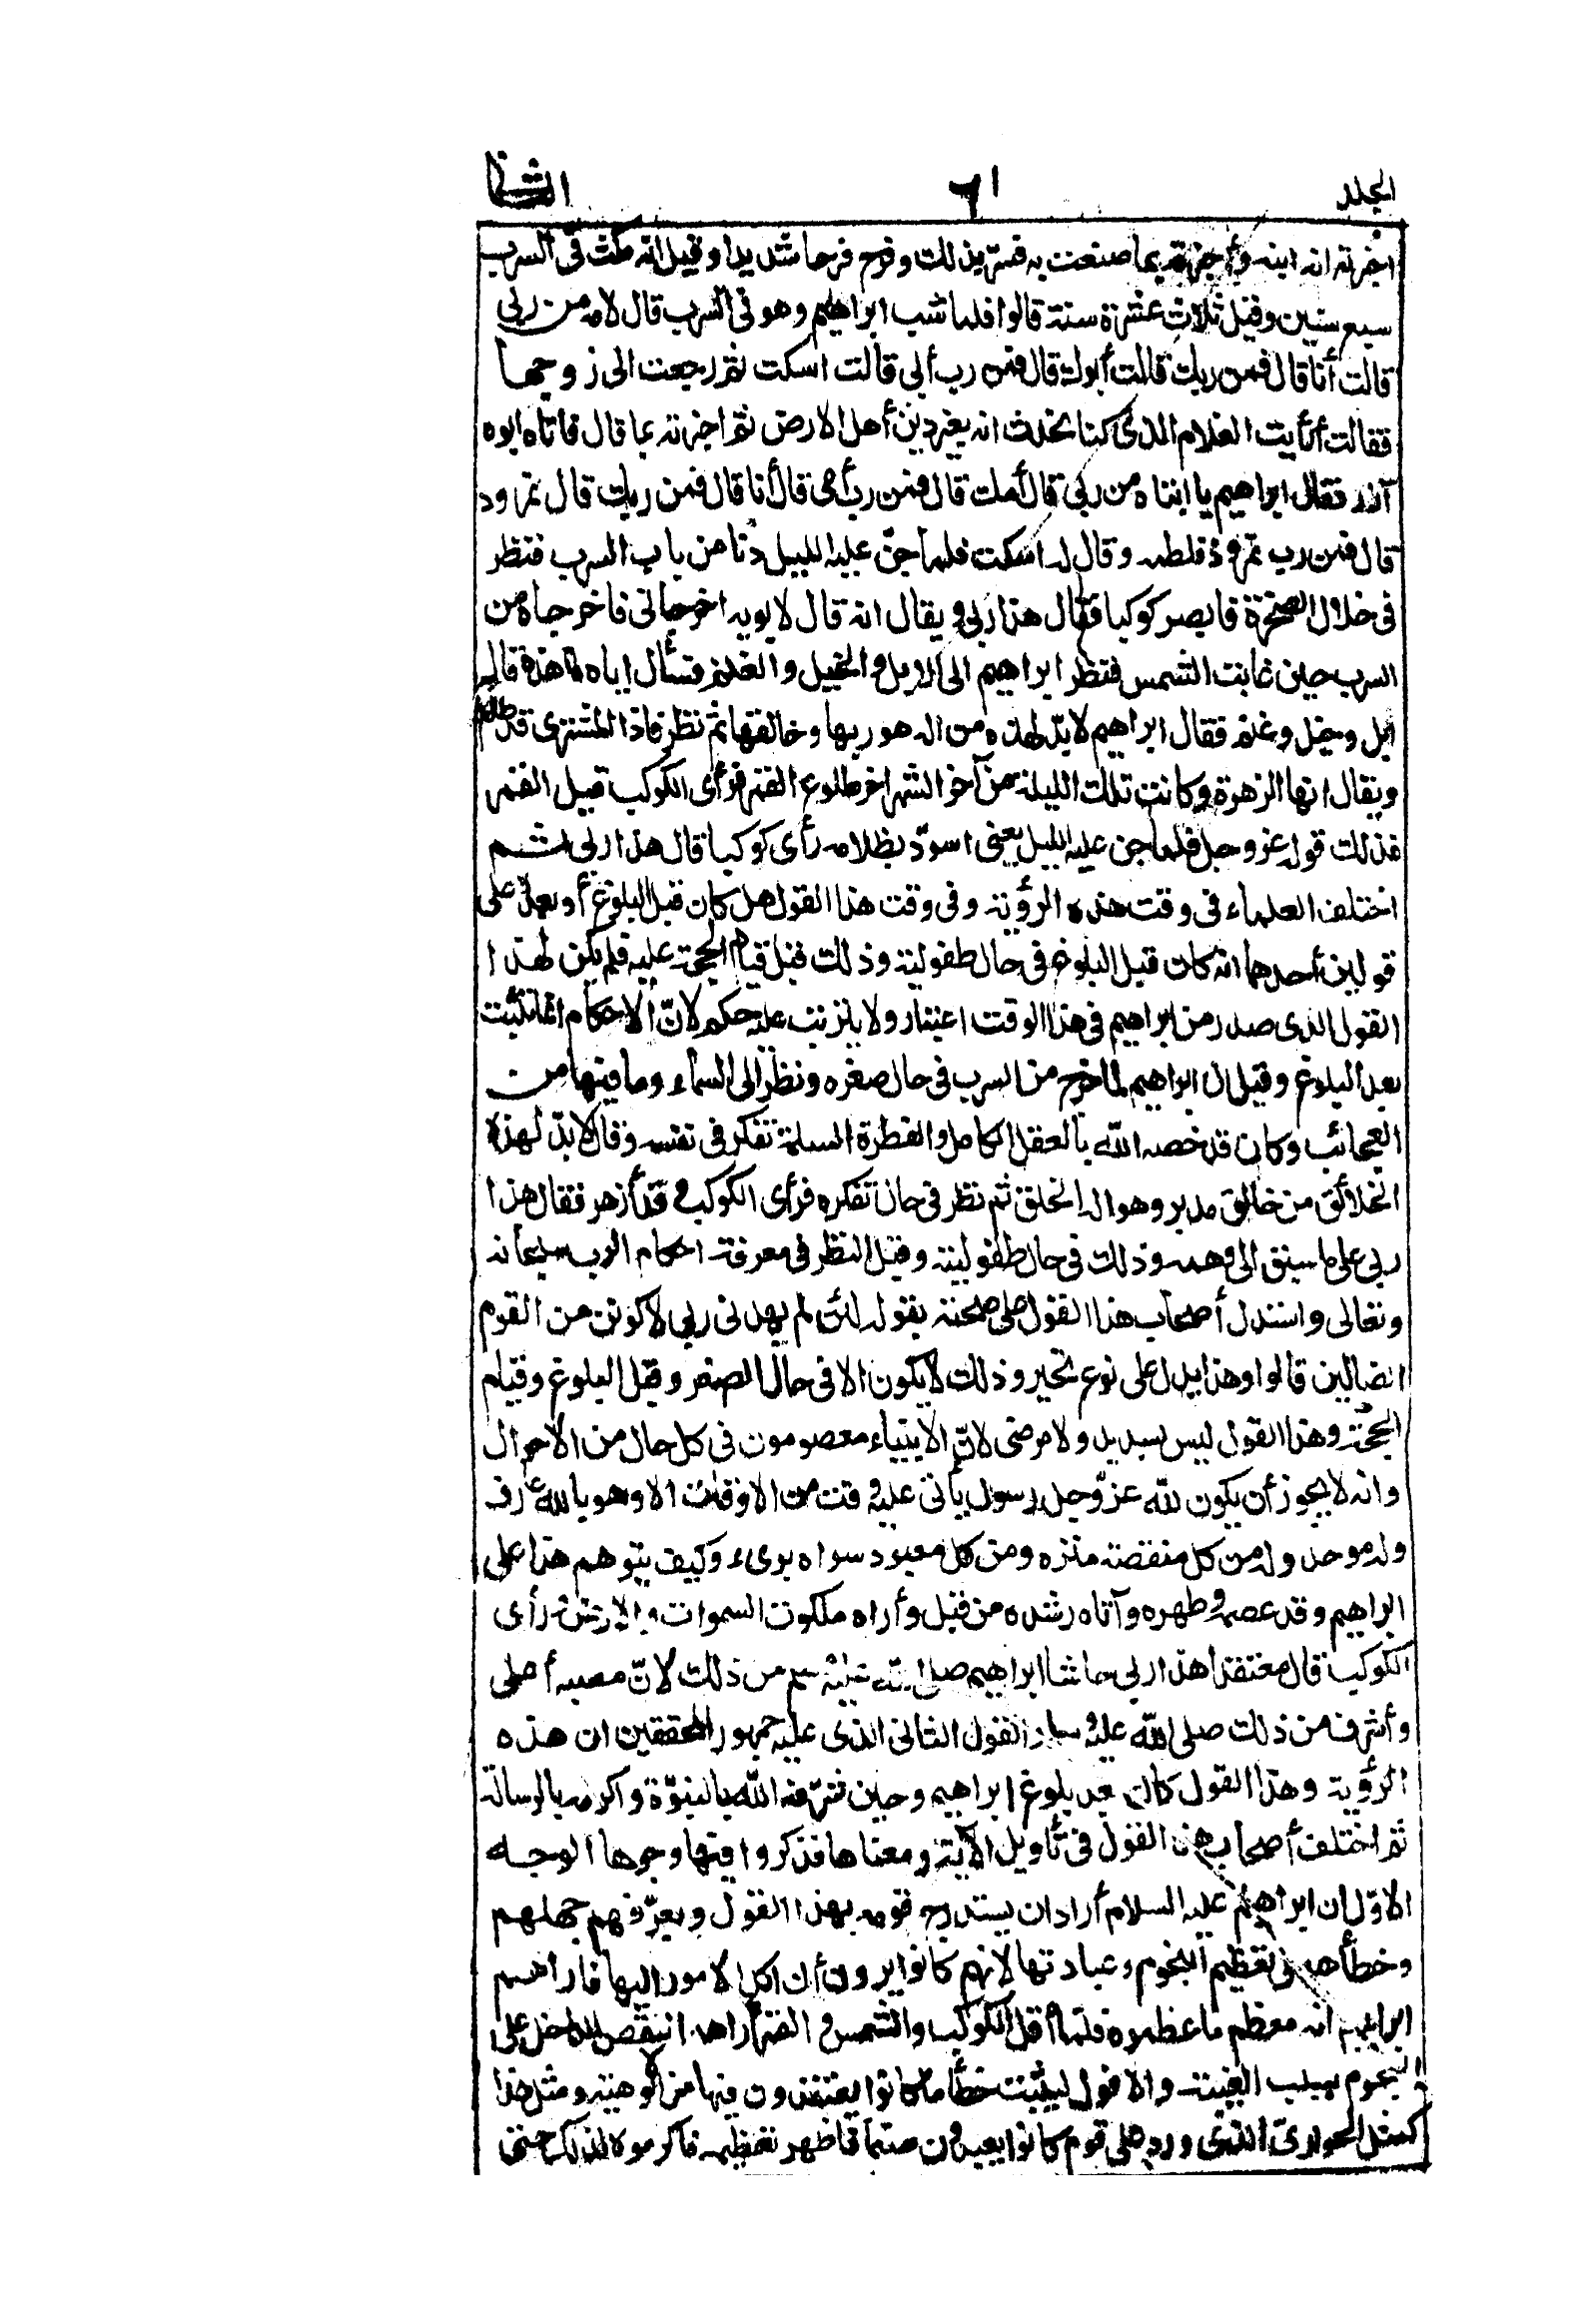 المجلد
٦١
الثانى
اخبرته انه ابنه وأخبرته بما صنعت به فسرّ بذلك وفرح فرحا شديدا وقيل انه مكث فى السرب
سبع سنين وقيل ثلاث عشرة سنة قالوا فلما شب ابراهيم وهو فى السرب قال لامه من ربى
قالت أنا قال فمن ربك قالت أبوك قال فمن رب أبى قالت اسكت ثم رجعت الى زوجها
فقالت أرأيت الغلام الذى كنا نحدث انه يغير دين أهل الارض ثم اخبرته بما قال فاتاه ابوه
آزر فقال ابراهيم يا ابتاه من ربى قال أمك قال فمن رب أمى قال أنا قال فمن ربك قال نمرود
قال فمن رب نمروذ فلطمه وقال له اسكت فلما جنّ عليه الليل دنا من باب السرب فنظر
فى خلال الصخرة فابصر كوكبا فقال هذا ربى ويقال انه قال لابويه اخرجانى فاخرجاه من
السرب حين غابت الشمس فنظر ابراهيم الى الابل والخيل والغنم فسأل اباه ما هذه قال
ابل وخيل وغنم فقال ابراهيم لا بدّ لهذه من اله هو ربها وخالقها ثم نظر فاذا المشترى قد طلع
ويقال انها الزهرة وكانت تلك الليلة من آخر الشهر اخر طلوع القمر فرأى الكوكب قبل القمر
فذلك قوله عز وجل فلما جن عليه الليل يعنى اسودّ بظلامه رأى كوكبا قال هذا ربى ثم
اختلف العلماء فى وقت هذه الرؤية وفى وقت هذا القول هل كان قبل البلوغ أو بعده على
قولين أحدهما انه كان قبل البلوغ فى حال طفوليته وذلك قبل قيام الحجة عليه فلم يكن لهذا
القول الذى صدر من ابراهيم فى هذا الوقت اعتبار ولا يترتب عليه حكم لانّ الاحكام انما تثبت
بعد البلوغ وقيل ان ابراهيم لما خرج من السرب فى حال صغره ونظر الى السماء وما فيها من
العجائب وكان قد خصه الله بالعقل الكامل والفطرة السليمة تفكر فى نفسه وقال لا بدّ لهذه
الخلائق من خالق مدبر وهو اله الخلق ثم نظر فى حال تفكره فرأى الكوكب وقد أزهر فقال هذا
ربى على ما سبق الى وهمه وذلك فى حال طفوليته وقبل النظر فى معرفة احكام الرب سبحانه
وتعالى واستدل أصحاب هذا القول على صحته بقوله لئن لم يهدنى ربى لاكونن من القوم
الضالين قالوا وهذا يدل على نوع تحير وذلك لا يكون الا فى حال الصغر وقبل البلوغ وقيام
الحجة وهذا القول ليس بسديد ولا مرضى لانّ الانبياء معصومون فى كل حال من الاحوال
وانه لا يجوز أن يكون لله عزّ وجل رسول يأتى عليه وقت من الاوقات الا وهو بالله عارف
وله موحد وله من كل منقصة منزه ومن كل معبود سواه برىء وكيف يتوهم هذا على
ابراهيم وقد عصمه وطهره وآتاه رشده من قبل وأراه ملكوت السموات والارض رأى
الكوكب قال معتقدا هذا ربى حاشا ابراهيم صلى الله عليه وسلم من ذلك لانّ منصبه أعلى
وأشرف من ذلك صلى الله عليه وسلم القول الثانى الذى عليه جمهور المحققين ان هذه
الرؤية وهذا القول كان بعد بلوغ ابراهيم وحين شرّفه الله بالنبوّة واكرمه بالرسالة
ثم اختلف أصحاب هذا القول فى تأويل الآية ومعناها فذكروا فيها وجوها الوجه
الاوّل ان ابراهيم عليه السلام أراد ان يستدرج قومه بهذا القول ويعرّفهم جهلهم
وخطأهم فى تعظيم النجوم وعبادتها لانهم كانوا يرون أن كل الامور اليها فاراهم
ابراهيم انه معظم ما عظموه فلما أفل الكوكب والشمس والقمر أراهم النقص الداخل على
النجوم بسبب الغيبة والافول ليثبت خطأ ما كانوا يعتقدون فيها من الالوهية ومثل هذا
كمثل الحوارىّ الذى ورد على قوم كانوا يعبدون صنما فاظهر تعظيمه فاكرموه لذلك حتى